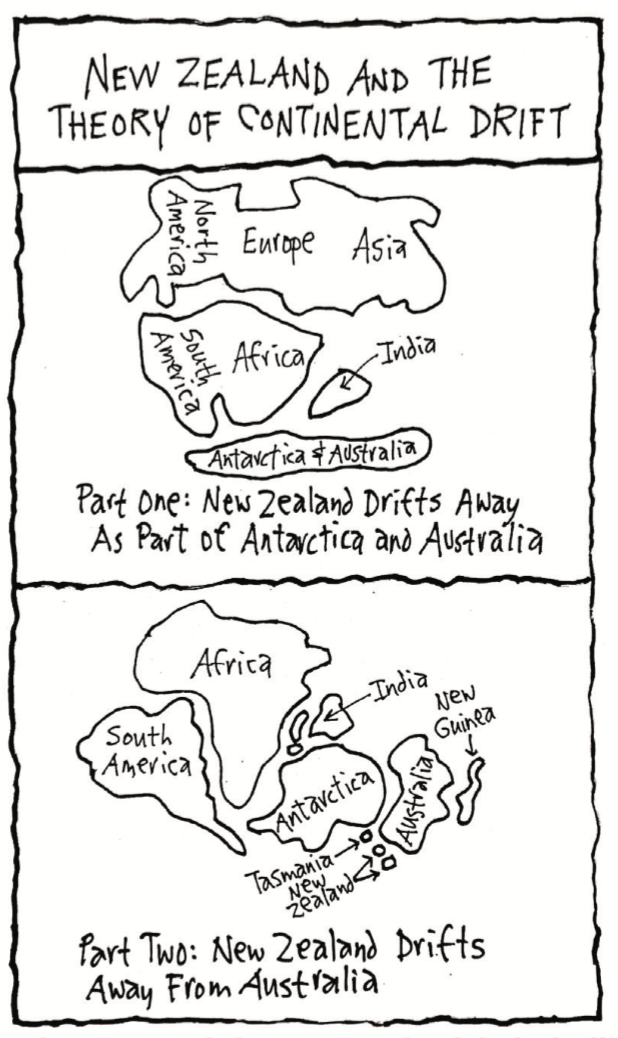 NEW ZEALAND AND THE
THEORY OF CONTINENTAL DRIFT
North
America
Europe
Asia
South
America
Africa
India
Antarctica & Australia
Part One: New Zealand Drifts Away
As Part of Antarctica and Australia
Africa
India
New
Guinea
South
America
Antarctica
Australia
Tasmania
New
Zealand
Part Two: New Zealand Drifts
Away From Australia